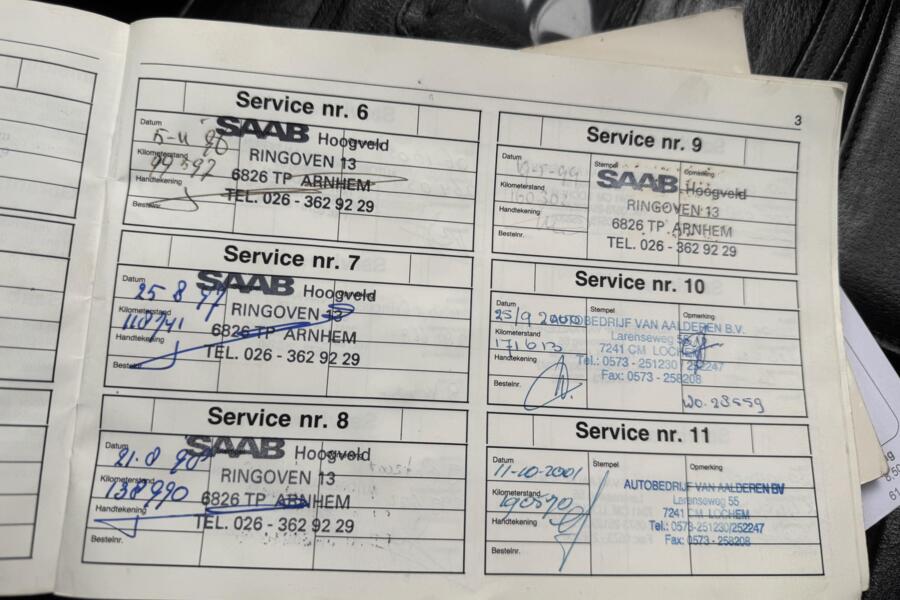 3
Service nr. 6
Datum
Kilometerstand 99397
Handtekening
Bestelnr.
SAAB Hoogveld
RINGOVEN 13
6826 TP ARNHEM
TEL. 026 - 362 92 29
Service nr. 7
Datum 25 8 97
Kilometerstand 118741
Handtekening
Bestelnr.
SAAB Hoogveld
RINGOVEN 13
6826 TP ARNHEM
TEL. 026 - 362 92 29
Service nr. 8
Datum 21-8 98
Kilometerstand 138990
Handtekening
Bestelnr.
SAAB Hoogveld
RINGOVEN 13
6826 TP ARNHEM
TEL. 026 - 362 92 29
Service nr. 9
Datum Stempel Opmerking
Kilometerstand
Handtekening
Bestelnr.
SAAB Hoogveld
RINGOVEN 13
6826 TP ARNHEM
TEL. 026 - 362 92 29
Service nr. 10
Datum Stempel Opmerking
25/9 2000
Kilometerstand
171613
Handtekening
Bestelnr.
AUTOBEDRIJF VAN AALDEREN B.V.
Larenseweg
7241 CM LOCHEM
Tel.: 0573 - 251230 / 252247
Fax: 0573 - 258208
WO. 23559
Service nr. 11
Datum Stempel Opmerking
11-10-2001
Kilometerstand
190570
Handtekening
Bestelnr.
AUTOBEDRIJF VAN AALDEREN BV
Larenseweg 55
7241 CM LOCHEM
Tel.: 0573-251230/252247
Fax: 0573 - 258208